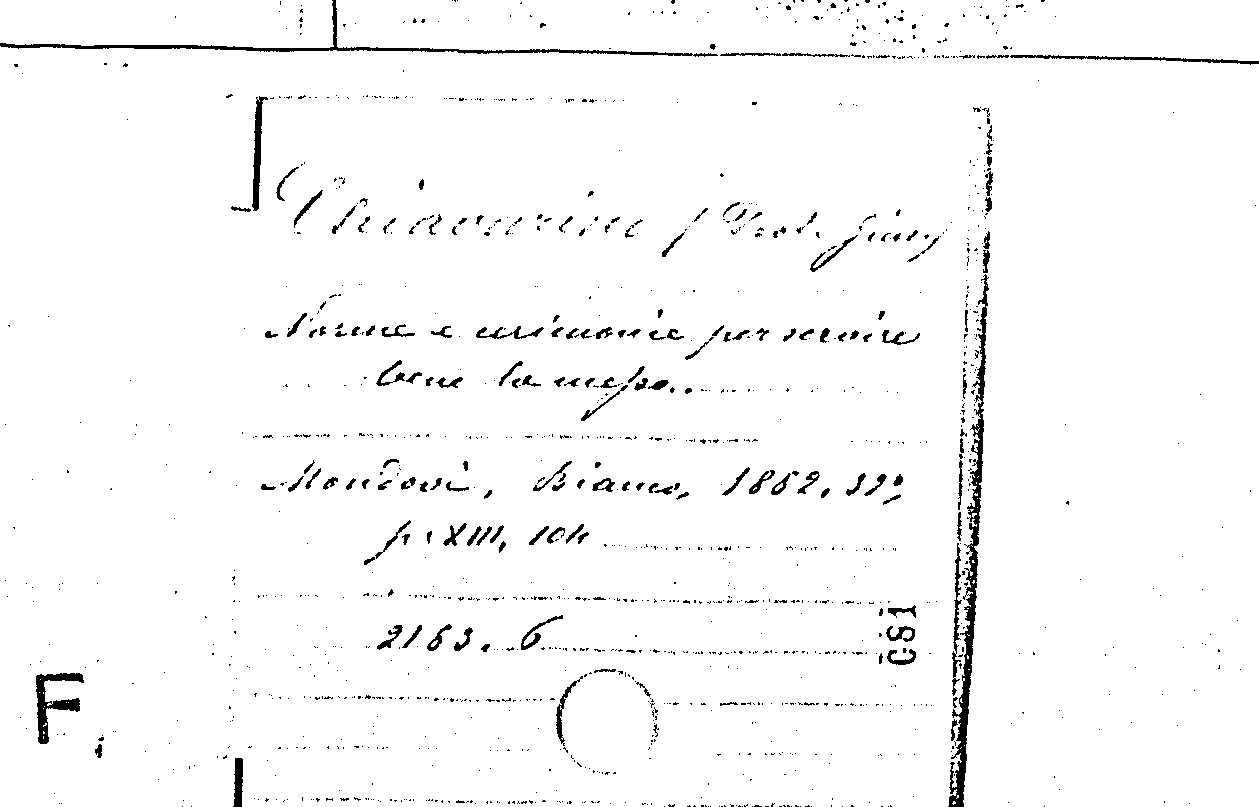 Chiavarino / Prof. Giany
Norme e cerimonie per servire
bene la messa.
Mondovì, Bianco, 1862. 32º,
p. XIII, 104
2163. 6
CSI
F